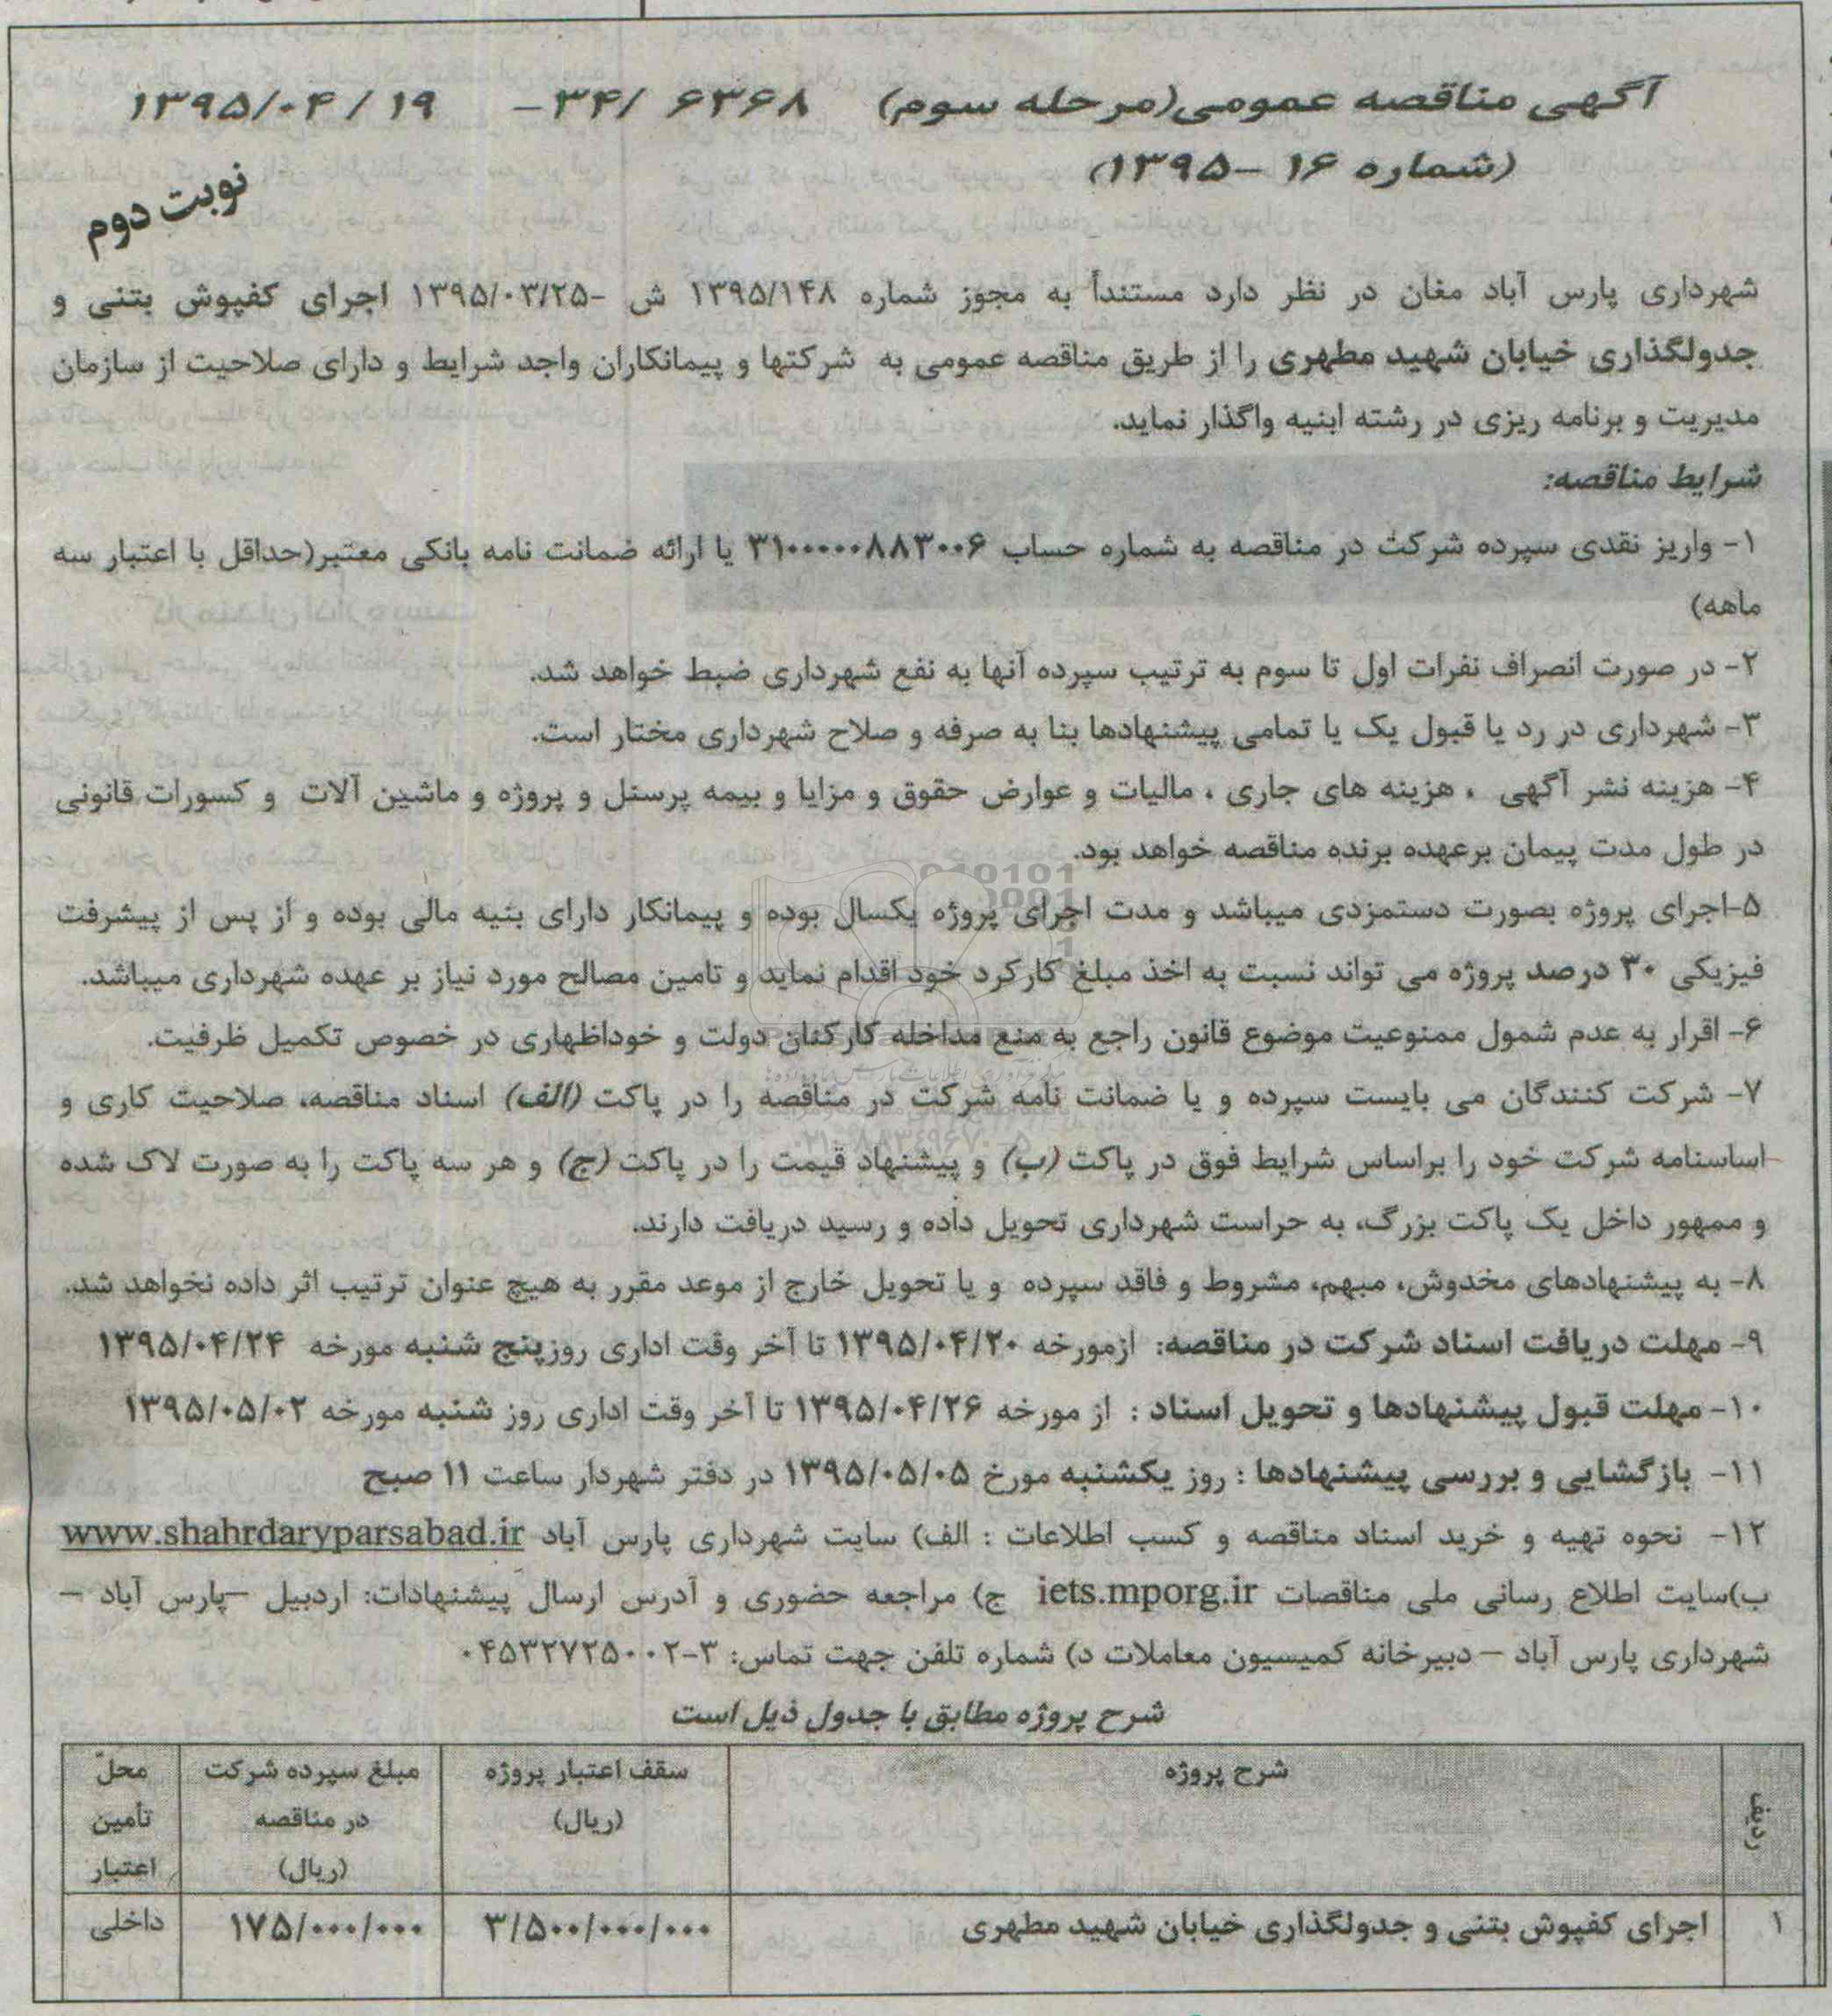 آگهی مناقصه عمومی(مرحله سوم) ۶۳۶۸ /۳۴- ۱۳۹۵/۰۴/۱۹
(شماره ۱۶ -۱۳۹۵)
نوبت دوم
شهرداری پارس آباد مغان در نظر دارد مستنداً به مجوز شماره ۱۳۹۵/۱۴۸ ش -۱۳۹۵/۰۳/۲۵ اجرای کفپوش بتنی و
جدولگذاری خیابان شهید مطهری را از طریق مناقصه عمومی به شرکتها و پیمانکاران واجد شرایط و دارای صلاحیت از سازمان
مدیریت و برنامه ریزی در رشته ابنیه واگذار نماید.
شرایط مناقصه:
۱- واریز نقدی سپرده شرکت در مناقصه به شماره حساب ۳۱۰۰۰۰۰۸۸۳۰۰۶ یا ارائه ضمانت نامه بانکی معتبر(حداقل با اعتبار سه
ماهه)
۲- در صورت انصراف نفرات اول تا سوم به ترتیب سپرده آنها به نفع شهرداری ضبط خواهد شد.
۳- شهرداری در رد یا قبول یک یا تمامی پیشنهادها بنا به صرفه و صلاح شهرداری مختار است.
۴- هزینه نشر آگهی ، هزینه های جاری ، مالیات و عوارض حقوق و مزایا و بیمه پرسنل و پروژه و ماشین آلات و کسورات قانونی
در طول مدت پیمان برعهده برنده مناقصه خواهد بود.
۵-اجرای پروژه بصورت دستمزدی میباشد و مدت اجرای پروژه یکسال بوده و پیمانکار دارای بنیه مالی بوده و از پس از پیشرفت
فیزیکی ۳۰ درصد پروژه می تواند نسبت به اخذ مبلغ کارکرد خود اقدام نماید و تامین مصالح مورد نیاز بر عهده شهرداری میباشد.
۶- اقرار به عدم شمول ممنوعیت موضوع قانون راجع به منع مداخله کارکنان دولت و خوداظهاری در خصوص تکمیل ظرفیت.
۷- شرکت کنندگان می بایست سپرده و یا ضمانت نامه شرکت در مناقصه را در پاکت (الف) اسناد مناقصه، صلاحیت کاری و
اساسنامه شرکت خود را براساس شرایط فوق در پاکت (ب) و پیشنهاد قیمت را در پاکت (ج) و هر سه پاکت را به صورت لاک شده
و ممهور داخل یک پاکت بزرگ، به حراست شهرداری تحویل داده و رسید دریافت دارند.
۸- به پیشنهادهای مخدوش، مبهم، مشروط و فاقد سپرده و یا تحویل خارج از موعد مقرر به هیچ عنوان ترتیب اثر داده نخواهد شد.
۹- مهلت دریافت اسناد شرکت در مناقصه: ازمورخه ۱۳۹۵/۰۴/۲۰ تا آخر وقت اداری روزپنج شنبه مورخه ۱۳۹۵/۰۴/۲۴
۱۰- مهلت قبول پیشنهادها و تحویل اسناد : از مورخه ۱۳۹۵/۰۴/۲۶ تا آخر وقت اداری روز شنبه مورخه ۱۳۹۵/۰۵/۰۲
۱۱- بازگشایی و بررسی پیشنهادها : روز یکشنبه مورخ ۱۳۹۵/۰۵/۰۵ در دفتر شهردار ساعت ۱۱ صبح
۱۲- نحوه تهیه و خرید اسناد مناقصه و کسب اطلاعات : الف) سایت شهرداری پارس آباد www.shahrdaryparsabad.ir
ب)سایت اطلاع رسانی ملی مناقصات iets.mporg.ir ج) مراجعه حضوری و آدرس ارسال پیشنهادات: اردبیل –پارس آباد –
شهرداری پارس آباد – دبیرخانه کمیسیون معاملات د) شماره تلفن جهت تماس: ۳-۰۴۵۳۲۷۲۵۰۰۲
شرح پروژه مطابق با جدول ذیل است
ردیف شرح پروژه سقف اعتبار پروژه مبلغ سپرده شرکت محلّ
(ریال) در مناقصه تأمین
(ریال) اعتبار
۱ اجرای کفپوش بتنی و جدولگذاری خیابان شهید مطهری ۳/۵۰۰/۰۰۰/۰۰۰ ۱۷۵/۰۰۰/۰۰۰ داخلی